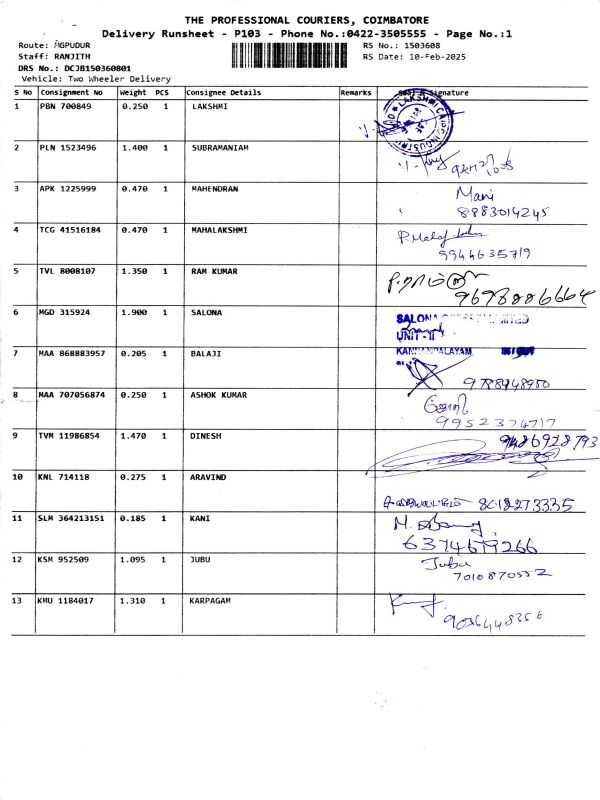 THE PROFESSIONAL COURIERS, COIMBATORE
Delivery Runsheet - P103 - Phone No.:0422-3505555 - Page No.:1
Route: MGPUDUR RS No.: 1503608
Staff: RANJITH RS Date: 10-Feb-2025
DRS No.: DCJB150360801
Vehicle: Two Wheeler Delivery
S No Consignment No Weight PCS Consignee Details Remarks Signature
1 PBN 700849 0.250 1 LAKSHMI
2 PLN 1523496 1.400 1 SUBRAMANIAM
3 APK 1225999 0.470 1 MAHENDRAN Mani
8883014245
4 TCG 41516184 0.470 1 MAHALAKSHMI
9944635719
5 TVL 8008107 1.350 1 RAM KUMAR
9698886664
6 MGD 315924 1.900 1 SALONA SALONA
UNIT - II
7 MAA 868883957 0.205 1 BALAJI KANNAMPALAYAM
8 MAA 707056874 0.250 1 ASHOK KUMAR
9952374717
9 TVM 11986854 1.470 1 DINESH 9486928793
10 KNL 714118 0.275 1 ARAVIND
11 SLM 364213151 0.185 1 KANI
6374679266
12 KSM 952509 1.095 1 JUBU Jubu
7010870552
13 KMU 1184017 1.310 1 KARPAGAM